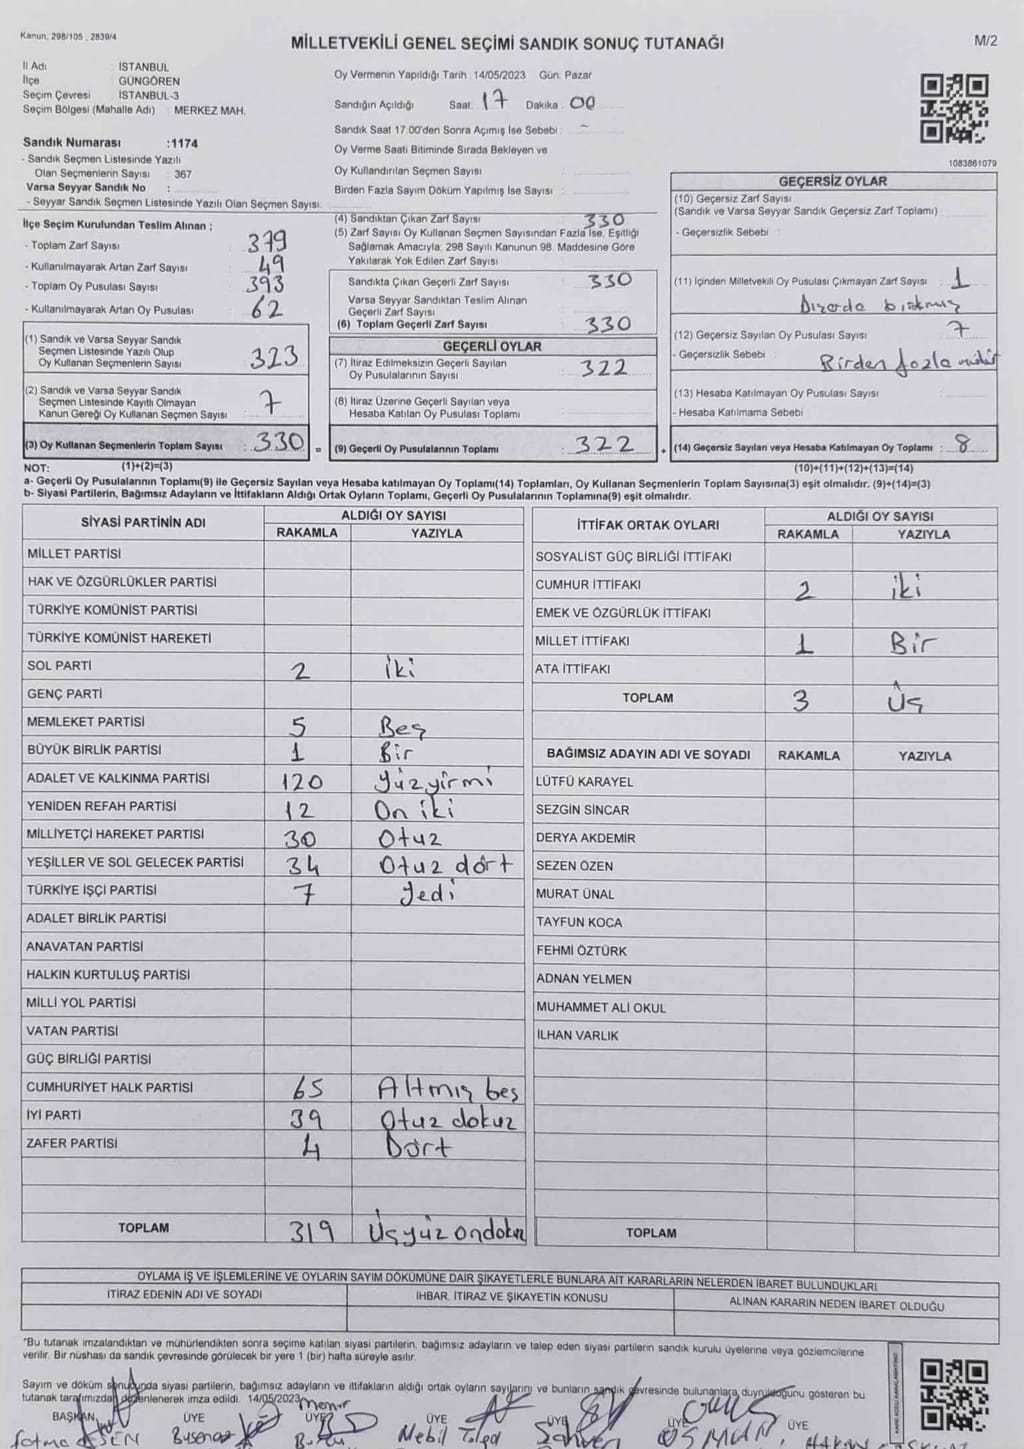 Kanun; 298/105 , 2839/4
MİLLETVEKİLİ GENEL SEÇİMİ SANDIK SONUÇ TUTANAĞI
M/2
İl Adı : İSTANBUL
İlçe : GÜNGÖREN
Seçim Çevresi : İSTANBUL-3
Seçim Bölgesi (Mahalle Adı) : MERKEZ MAH.
Oy Vermenin Yapıldığı Tarih :14/05/2023 Gün: Pazar
Sandığın Açıldığı Saat: 17 Dakika : 00
Sandık Saat 17.00'den Sonra Açılmış İse Sebebi : -
Oy Verme Saati Bitiminde Sırada Bekleyen ve
Oy Kullandırılan Seçmen Sayısı :
Birden Fazla Sayım Döküm Yapılmış İse Sayısı :
1083861079
Sandık Numarası :1174
- Sandık Seçmen Listesinde Yazılı
Olan Seçmenlerin Sayısı : 367
Varsa Seyyar Sandık No :
- Seyyar Sandık Seçmen Listesinde Yazılı Olan Seçmen Sayısı:
İlçe Seçim Kurulundan Teslim Alınan ;
- Toplam Zarf Sayısı : 379
- Kullanılmayarak Artan Zarf Sayısı : 49
- Toplam Oy Pusulası Sayısı : 393
- Kullanılmayarak Artan Oy Pusulası : 62
(1) Sandık ve Varsa Seyyar Sandık
Seçmen Listesinde Yazılı Olup
Oy Kullanan Seçmenlerin Sayısı : 323
(2) Sandık ve Varsa Seyyar Sandık
Seçmen Listesinde Kayıtlı Olmayan
Kanun Gereği Oy Kullanan Seçmen Sayısı : 7
(3) Oy Kullanan Seçmenlerin Toplam Sayısı : 330 =
(4) Sandıktan Çıkan Zarf Sayısı : 330
(5) Zarf Sayısı Oy Kullanan Seçmen Sayısından Fazla İse, Eşitliği
Sağlamak Amacıyla, 298 Sayılı Kanunun 98. Maddesine Göre
Yakılarak Yok Edilen Zarf Sayısı :
Sandıkta Çıkan Geçerli Zarf Sayısı : 330
Varsa Seyyar Sandıktan Teslim Alınan
Geçerli Zarf Sayısı :
(6) Toplam Geçerli Zarf Sayısı : 330
GEÇERLİ OYLAR
(7) İtiraz Edilmeksizin Geçerli Sayılan
Oy Pusulalarının Sayısı : 322
(8) İtiraz Üzerine Geçerli Sayılan veya
Hesaba Katılan Oy Pusulası Toplamı :
(9) Geçerli Oy Pusulalarının Toplamı : 322 +
GEÇERSİZ OYLAR
(10) Geçersiz Zarf Sayısı
(Sandık ve Varsa Seyyar Sandık Geçersiz Zarf Toplamı) :
- Geçersizlik Sebebi :
(11) İçinden Milletvekili Oy Pusulası Çıkmayan Zarf Sayısı : 1
Dışarda bırakmış
(12) Geçersiz Sayılan Oy Pusulası Sayısı : 7
- Geçersizlik Sebebi : Birden fazla mühür
(13) Hesaba Katılmayan Oy Pusulası Sayısı :
- Hesaba Katılmama Sebebi :
(14) Geçersiz Sayılan veya Hesaba Katılmayan Oy Toplamı : 8
NOT: (1)+(2)=(3) (10)+(11)+(12)+(13)=(14)
a- Geçerli Oy Pusulalarının Toplamı(9) ile Geçersiz Sayılan veya Hesaba katılmayan Oy Toplamı(14) Toplamları, Oy Kullanan Seçmenlerin Toplam Sayısına(3) eşit olmalıdır. (9)+(14)=(3)
b- Siyasi Partilerin, Bağımsız Adayların ve İttifakların Aldığı Ortak Oyların Toplamı, Geçerli Oy Pusulalarının Toplamına(9) eşit olmalıdır.
SİYASİ PARTİNİN ADI ALDIĞI OY SAYISI
RAKAMLA YAZIYLA
MİLLET PARTİSİ
HAK VE ÖZGÜRLÜKLER PARTİSİ
TÜRKİYE KOMÜNİST PARTİSİ
TÜRKİYE KOMÜNİST HAREKETİ
SOL PARTİ 2 İki
GENÇ PARTİ
MEMLEKET PARTİSİ 5 Beş
BÜYÜK BİRLİK PARTİSİ 1 Bir
ADALET VE KALKINMA PARTİSİ 120 Yüz yirmi
YENİDEN REFAH PARTİSİ 12 On iki
MİLLİYETÇİ HAREKET PARTİSİ 30 Otuz
YEŞİLLER VE SOL GELECEK PARTİSİ 34 Otuz dört
TÜRKİYE İŞÇİ PARTİSİ 7 Yedi
ADALET BİRLİK PARTİSİ
ANAVATAN PARTİSİ
HALKIN KURTULUŞ PARTİSİ
MİLLİ YOL PARTİSİ
VATAN PARTİSİ
GÜÇ BİRLİĞİ PARTİSİ
CUMHURİYET HALK PARTİSİ 65 Altmış beş
İYİ PARTİ 39 Otuz dokuz
ZAFER PARTİSİ 4 Dört
TOPLAM 319 Üçyüz ondokuz
İTTİFAK ORTAK OYLARI ALDIĞI OY SAYISI
RAKAMLA YAZIYLA
SOSYALİST GÜÇ BİRLİĞİ İTTİFAKI
CUMHUR İTTİFAKI 2 İki
EMEK VE ÖZGÜRLÜK İTTİFAKI
MİLLET İTTİFAKI 1 Bir
ATA İTTİFAKI
TOPLAM 3 Üç
BAĞIMSIZ ADAYIN ADI VE SOYADI RAKAMLA YAZIYLA
LÜTFÜ KARAYEL
SEZGİN SİNCAR
DERYA AKDEMİR
SEZEN ÖZEN
MURAT ÜNAL
TAYFUN KOCA
FEHMİ ÖZTÜRK
ADNAN YELMEN
MUHAMMET ALİ OKUL
İLHAN VARLIK
TOPLAM
OYLAMA İŞ VE İŞLEMLERİNE VE OYLARIN SAYIM DÖKÜMÜNE DAİR ŞİKAYETLERLE BUNLARA AİT KARARLARIN NELERDEN İBARET BULUNDUKLARI
İTİRAZ EDENİN ADI VE SOYADI İHBAR, İTİRAZ VE ŞİKAYETİN KONUSU ALINAN KARARIN NEDEN İBARET OLDUĞU
"Bu tutanak imzalandıktan ve mühürlendikten sonra seçime katılan siyasi partilerin, bağımsız adayların ve talep eden siyasi partilerin sandık kurulu üyelerine veya gözlemcilerine
verilir. Bir nüshası da sandık çevresinde görülecek bir yere 1 (bir) hafta süreyle asılır.
Sayım ve döküm sonucunda siyasi partilerin, bağımsız adayların ve ittifakların aldığı ortak oyların sayılarını ve bunların sandık çevresinde bulunanlara duyurulduğunu gösteren bu
tutanak tarafımızdan düzenlenerek imza edildi. 14/05/2023
BAŞKAN ÜYE Memur ÜYE ÜYE ÜYE ÜYE ÜYE
Fatma ESEN Nebil OSMAN